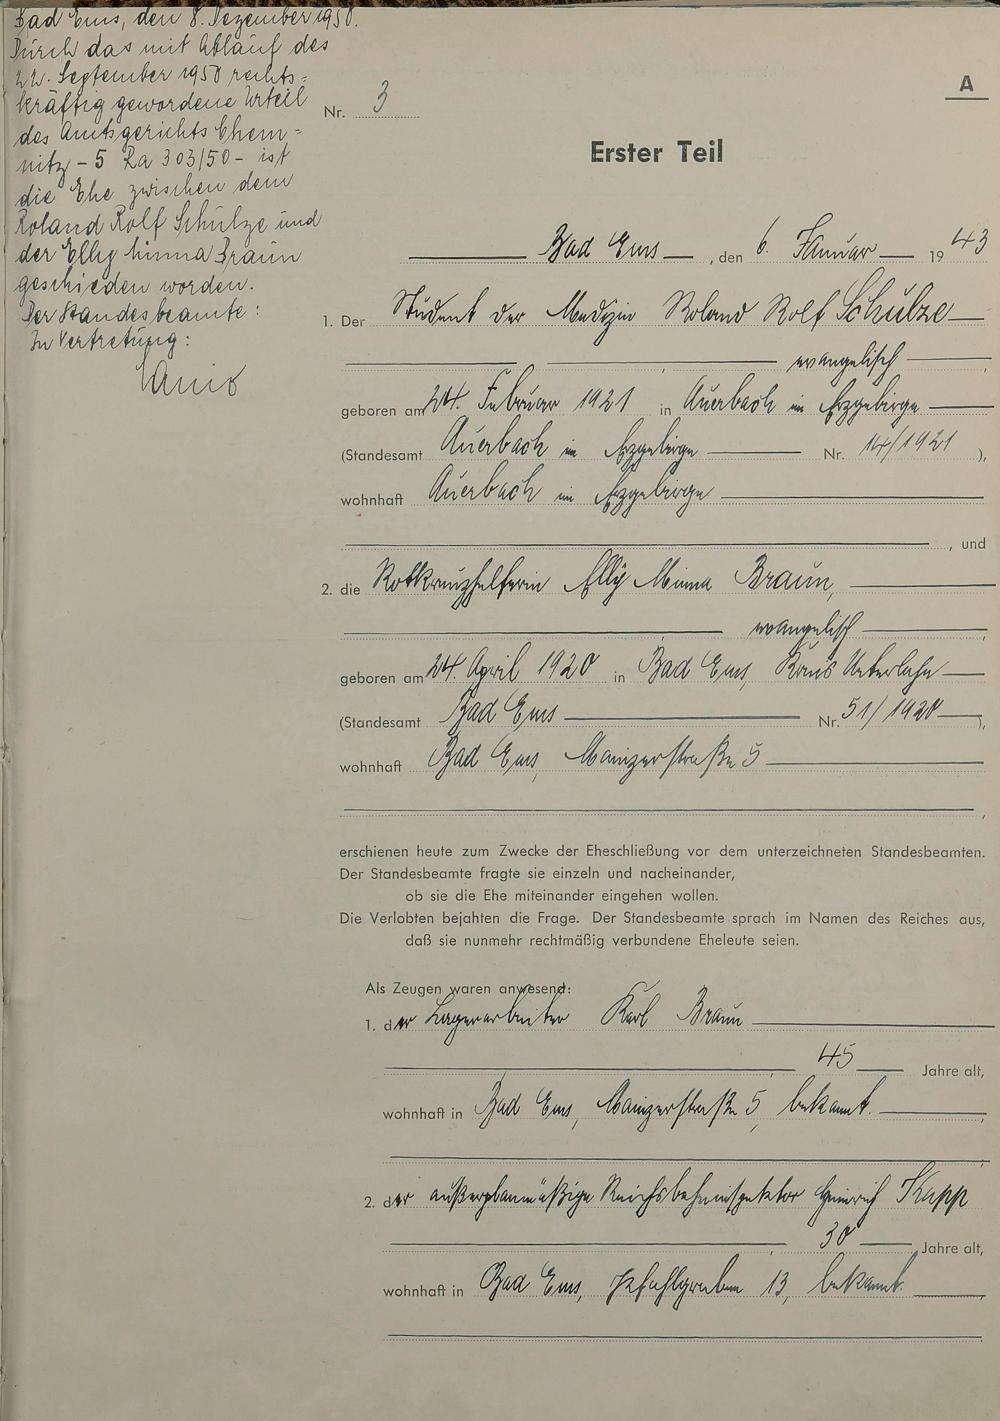 Bad Ems, den 8. Dezember 1950.
Durch das mit Ablauf des
22. September 1950 rechts=
kräftig gewordene Urteil
des Amtsgerichts Chem=
nitz - 5 Ra 303/50 - ist
die Ehe zwischen dem
Roland Rolf Schulze und
der Elly Minna Braun
geschieden worden.
Der Standesbeamte:
In Vertretung:
A
Nr. 3
Erster Teil
Bad Ems, den 6. Januar 1943
1. Der Student der Medizin Roland Rolf Schulze
, evangelisch,
geboren am 24. Februar 1921 in Auerbach im Erzgebirge
(Standesamt Auerbach im Erzgebirge Nr. 14/1921),
wohnhaft Auerbach im Erzgebirge
, und
2. die Rotkreuzhelferin Elly Minna Braun,
, evangelisch,
geboren am 24. April 1920 in Bad Ems, Kreis Unterlahn
(Standesamt Bad Ems Nr. 51/1920),
wohnhaft Bad Ems, Mainzerstraße 5
,
erschienen heute zum Zwecke der Eheschließung vor dem unterzeichneten Standesbeamten.
Der Standesbeamte fragte sie einzeln und nacheinander,
ob sie die Ehe miteinander eingehen wollen.
Die Verlobten bejahten die Frage. Der Standesbeamte sprach im Namen des Reiches aus,
daß sie nunmehr rechtmäßig verbundene Eheleute seien.
Als Zeugen waren anwesend:
1. der Lagerarbeiter Karl Braun
, 45 Jahre alt,
wohnhaft in Bad Ems, Mainzerstraße 5, bekannt.
2. der außerplanmäßige Reichsbahninspektor Heinrich Kapp
, 30 Jahre alt,
wohnhaft in Bad Ems, 13, bekannt.